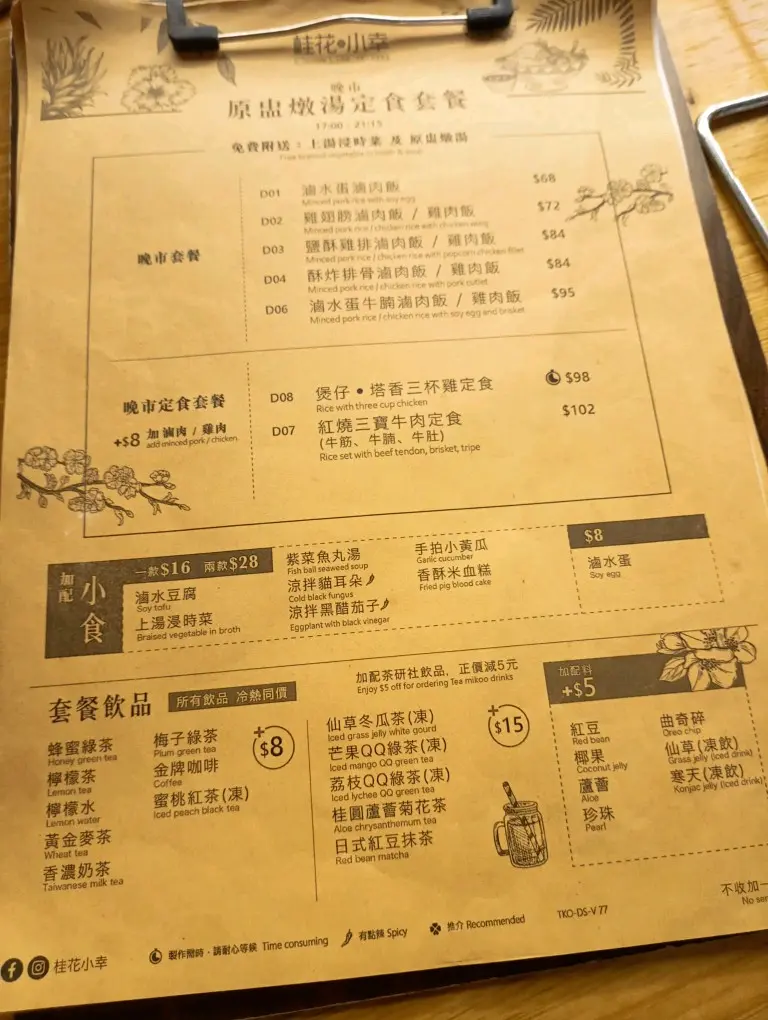 桂花小幸
晚市
原盅燉湯定食套餐
17:00 - 21:15
免費附送：上湯浸時菜 及 原盅燉湯
晚市套餐
D01 滷水蛋滷肉飯 $68
Minced pork rice with soy egg
D02 雞翅膀滷肉飯 / 雞肉飯 $72
Minced pork rice / chicken rice with chicken wing
D03 鹽酥雞排滷肉飯 / 雞肉飯 $84
Minced pork rice / chicken rice with popcorn chicken fillet
D04 酥炸排骨滷肉飯 / 雞肉飯 $84
Minced pork rice / chicken rice with pork cutlet
D06 滷水蛋牛腩滷肉飯 / 雞肉飯 $95
Minced pork rice / chicken rice with soy egg and brisket
晚市定食套餐
+$8 加 滷肉 / 雞肉
add minced pork / chicken
D08 煲仔•塔香三杯雞定食 $98
Rice with three cup chicken
D07 紅燒三寶牛肉定食 $102
(牛筋、牛腩、牛肚)
Rice set with beef tendon, brisket, tripe
加配
小食
一款$16 兩款$28
滷水豆腐
Soy tofu
上湯浸時菜
Braised vegetable in broth
紫菜魚丸湯
Fish ball seaweed soup
涼拌貓耳朵
Cold black fungus
涼拌黑醋茄子
Eggplant with black vinegar
手拍小黃瓜
Garlic cucumber
香酥米血糕
Fried pig blood cake
$8
滷水蛋
Soy egg
套餐飲品
所有飲品 冷熱同價
蜂蜜綠茶
Honey green tea
檸檬茶
Lemon tea
檸檬水
Lemon water
黃金麥茶
Wheat tea
香濃奶茶
Taiwanese milk tea
梅子綠茶
Plum green tea
金牌咖啡
Coffee
蜜桃紅茶(凍)
Iced peach black tea
+$8
加配茶研社飲品，正價減5元
Enjoy $5 off for ordering Tea mikoo drinks
仙草冬瓜茶(凍)
Iced grass jelly white gourd
芒果QQ綠茶(凍)
Iced mango QQ green tea
荔枝QQ綠茶(凍)
Iced lychee QQ green tea
桂圓蘆薈菊花茶
Aloe chrysanthemum tea
日式紅豆抹茶
Red bean matcha
+$15
加配料
+$5
紅豆
Red bean
椰果
Coconut jelly
蘆薈
Aloe
珍珠
Pearl
曲奇碎
Oreo chip
仙草(凍飲)
Grass jelly (iced drink)
寒天(凍飲)
Konjac jelly (iced drink)
不收加一
No ser
桂花小幸
製作需時，請耐心等候 Time consuming
有點辣 Spicy
推介 Recommended
TKO-DS-V 77